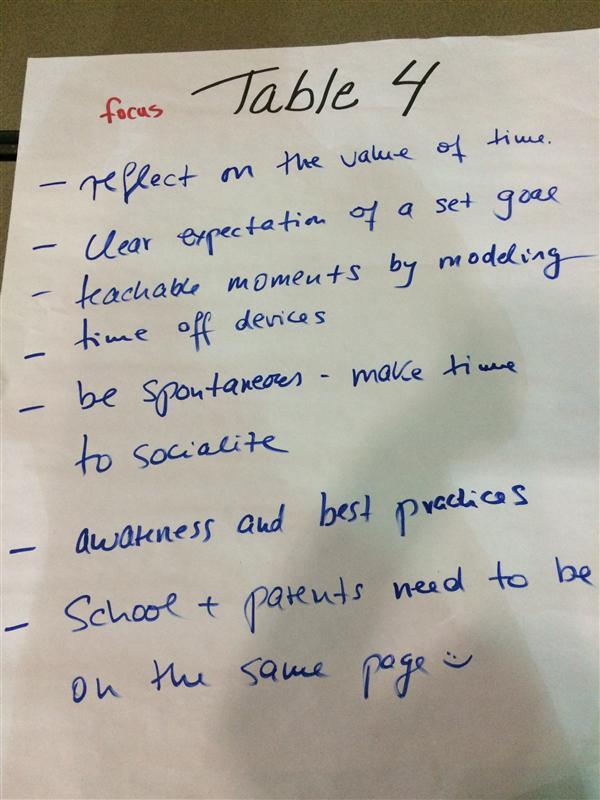 focus Table 4
- reflect on the value of time.
- Clear expectation of a set goal
- teachable moments by modeling
- time off devices
- be spontaneous - make time
to socialize
- awareness and best practices
- School + parents need to be
on the same page :)